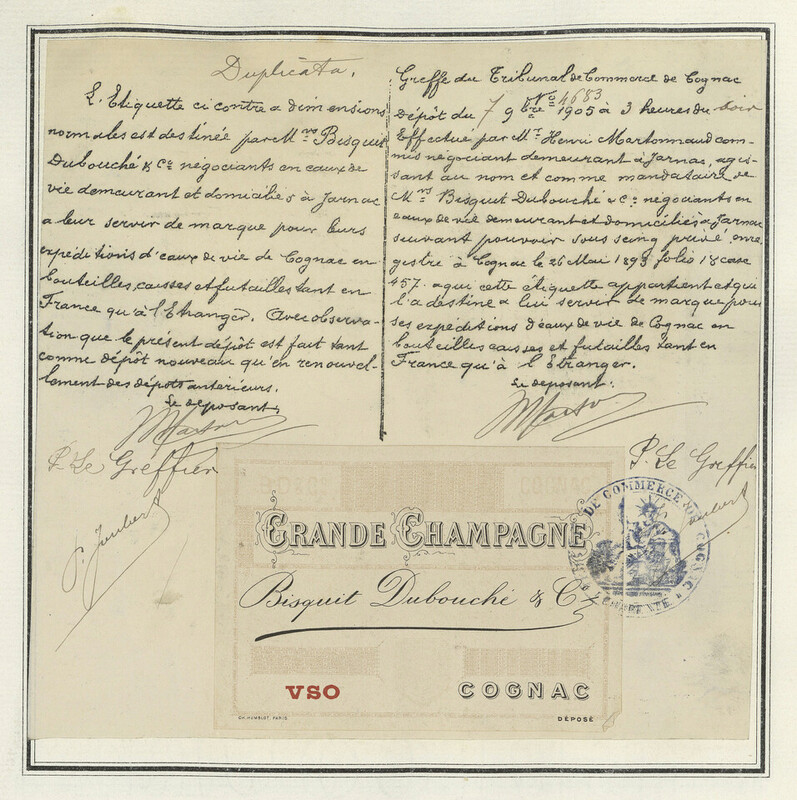 Duplicata.
L'Etiquette ci contre a dimensions
normales est destinée par Mrs Bisquit
Dubouché & Co négociants en eaux de
vie demeurant et domiciliés à Jarnac
a leur servir de marque pour leurs
expéditions d'eaux de vie de Cognac en
bouteilles, caisses et futailles tant en
France qu'à l'Etranger. Avec observa-
tion que le présent dépôt est fait tant
comme dépôt nouveau qu'en renouvel-
lement des dépôts antérieurs.
Le deposant,
P. Le Greffier
P. Joubert
Greffe du Tribunal de Commerce de Cognac
No 4683
Dépôt du 7 9bre 1905 à 3 heures du soir
Effectué par Mr Henri Martonnaud com-
mis négociant demeurant à Jarnac, agis-
sant au nom et comme mandataire de
Mrs Bisquit Dubouché & Co négociants en
eaux de vie demeurant et domiciliés à Jarnac
suivant pouvoir sous seing privé, enre
gistré à Cognac le 26 Mai 1893 folio 18 case
457. a qui cette étiquette appartient et qui
l'a destine a lui servir de marque pour
ses expéditions d'eaux de vie de Cognac en
bouteilles caisses et futailles tant en
France qu'à l'Etranger.
Le deposant:
P. Le Greffier
Joubert
DE COMMERCE DE COGNAC
CHARENTE
GRANDE CHAMPAGNE
Bisquit Dubouché & Co
VSO COGNAC
CH. HUMBLOT, PARIS DÉPOSÉ